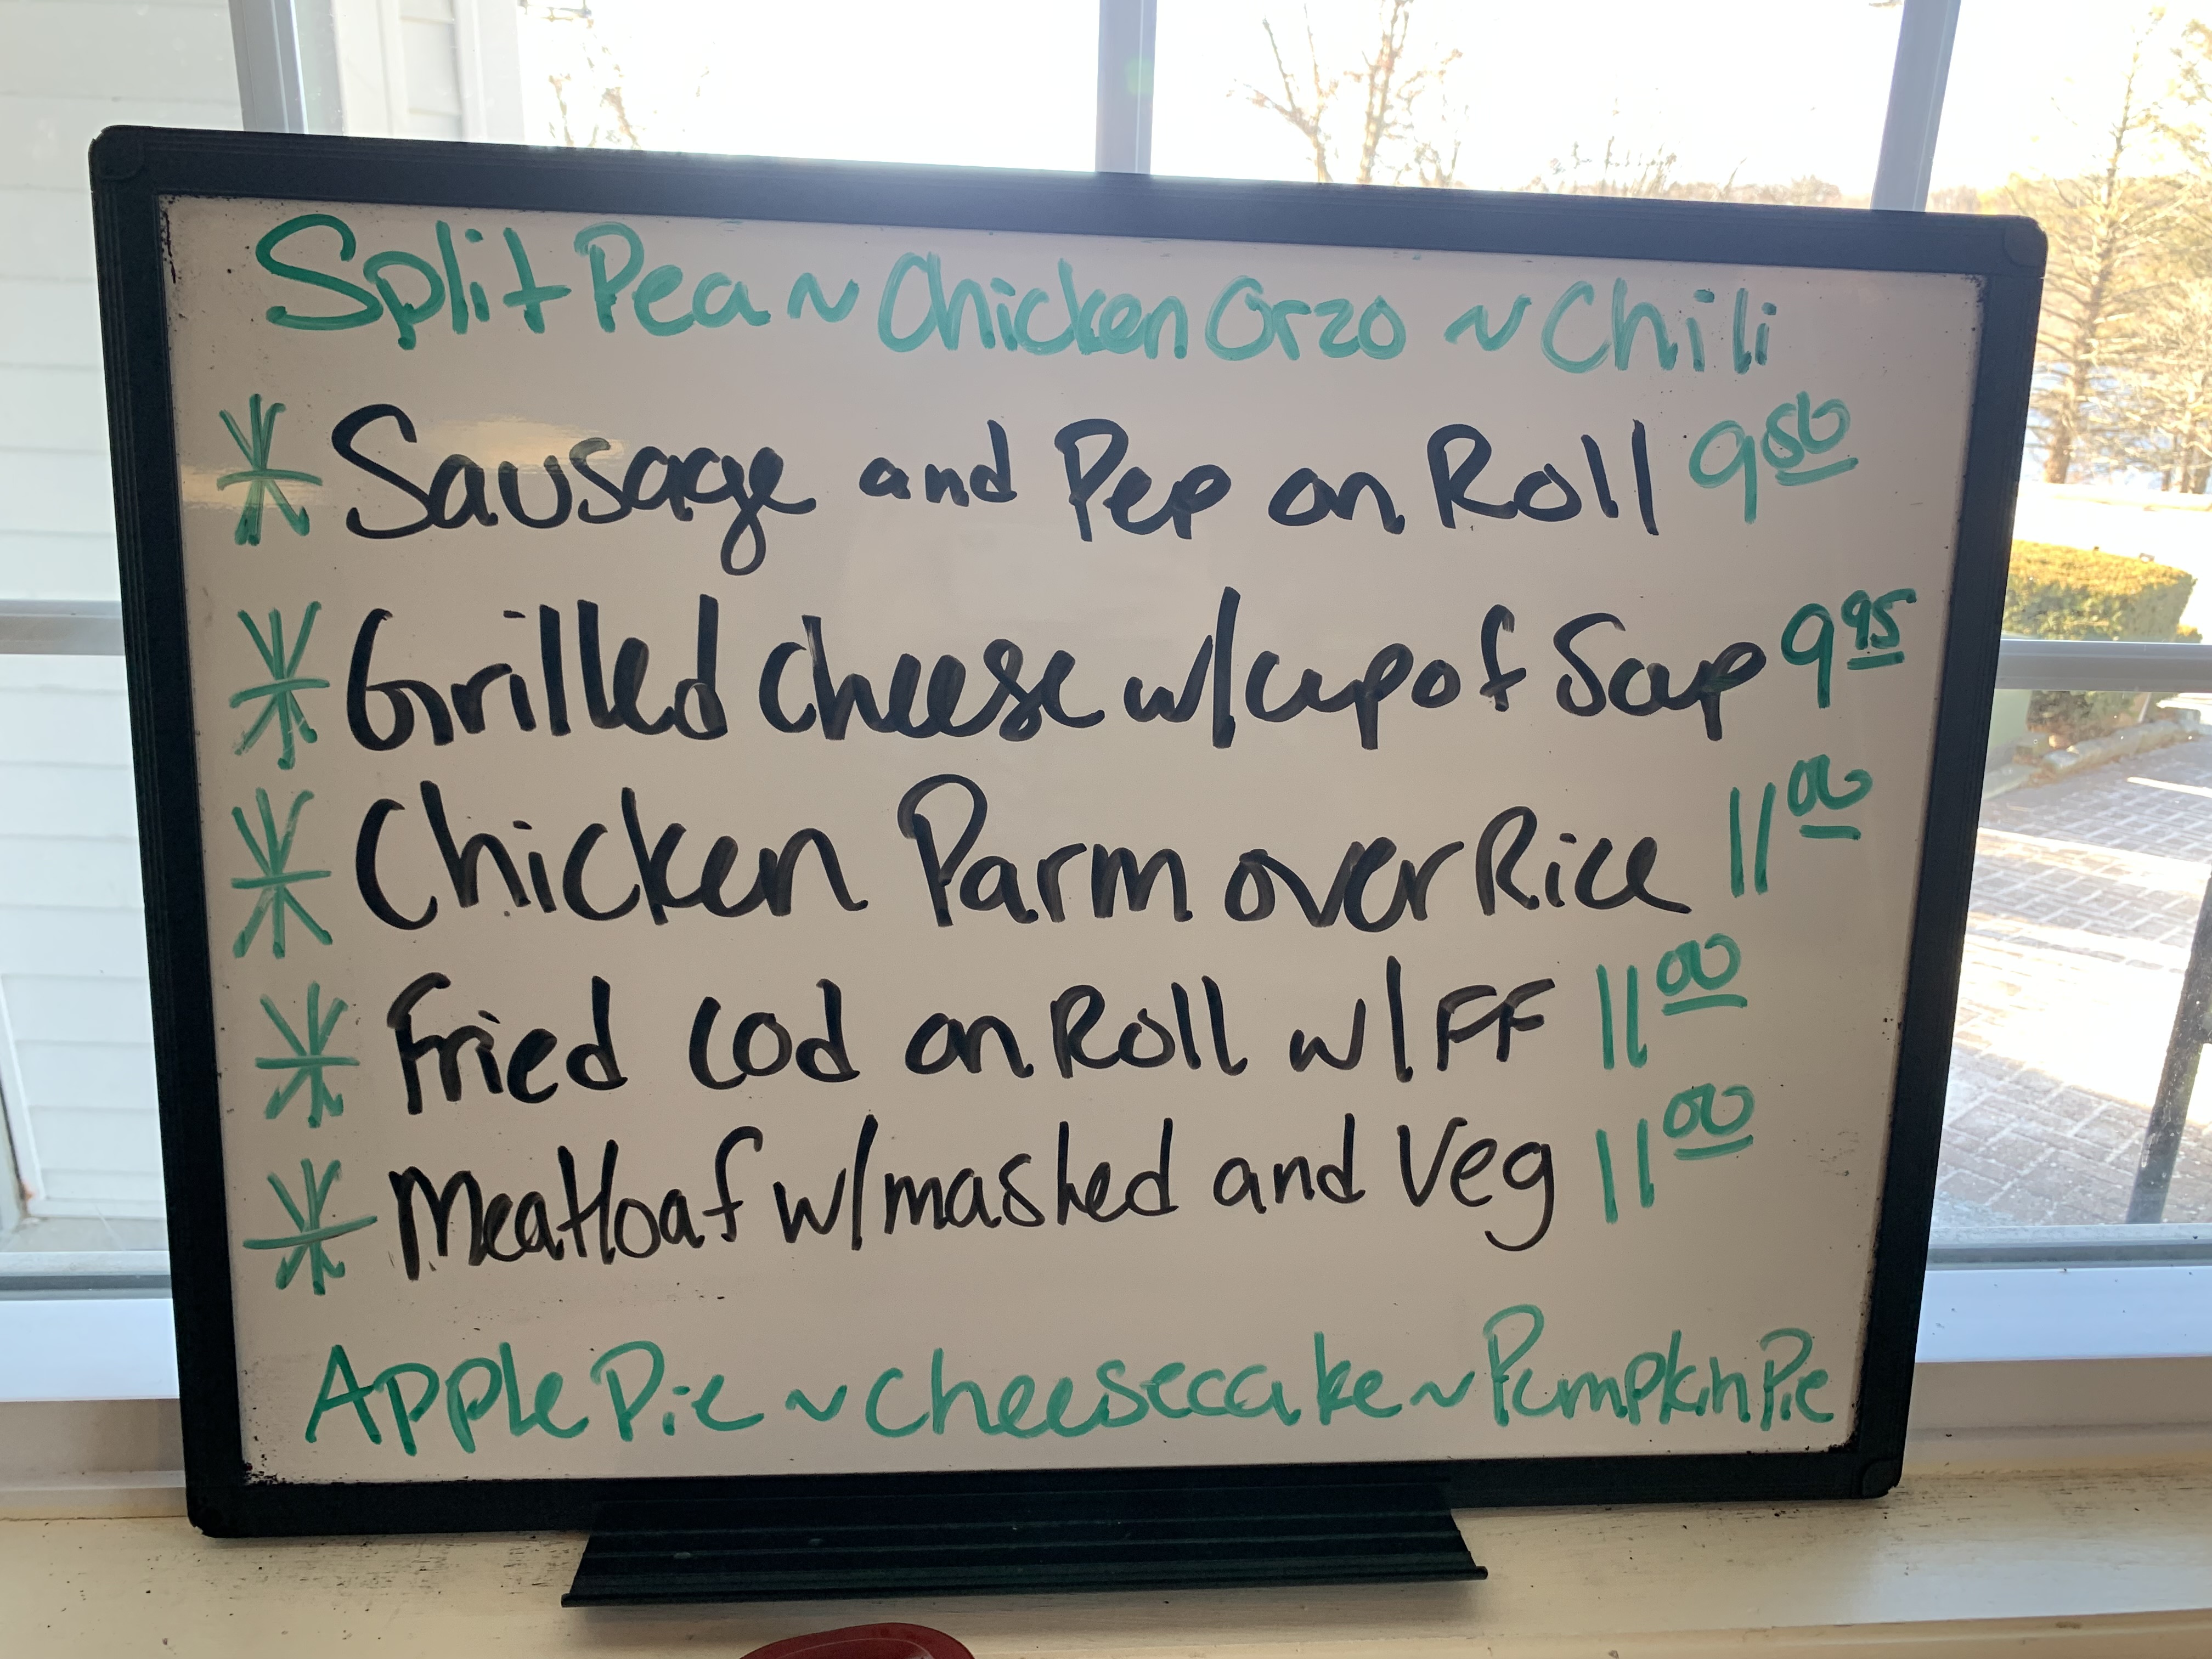 Split Pea ~ Chicken Orzo ~ Chili
* Sausage and Pep on Roll 9 50
* Grilled Cheese w/ cup of Soup 9 95
* Chicken Parm over Rice 11 00
* Fried Cod on Roll w/ FF 11 00
* Meatloaf w/ mashed and Veg 11 00
Apple Pie ~ Cheesecake ~ Pumpkin Pie